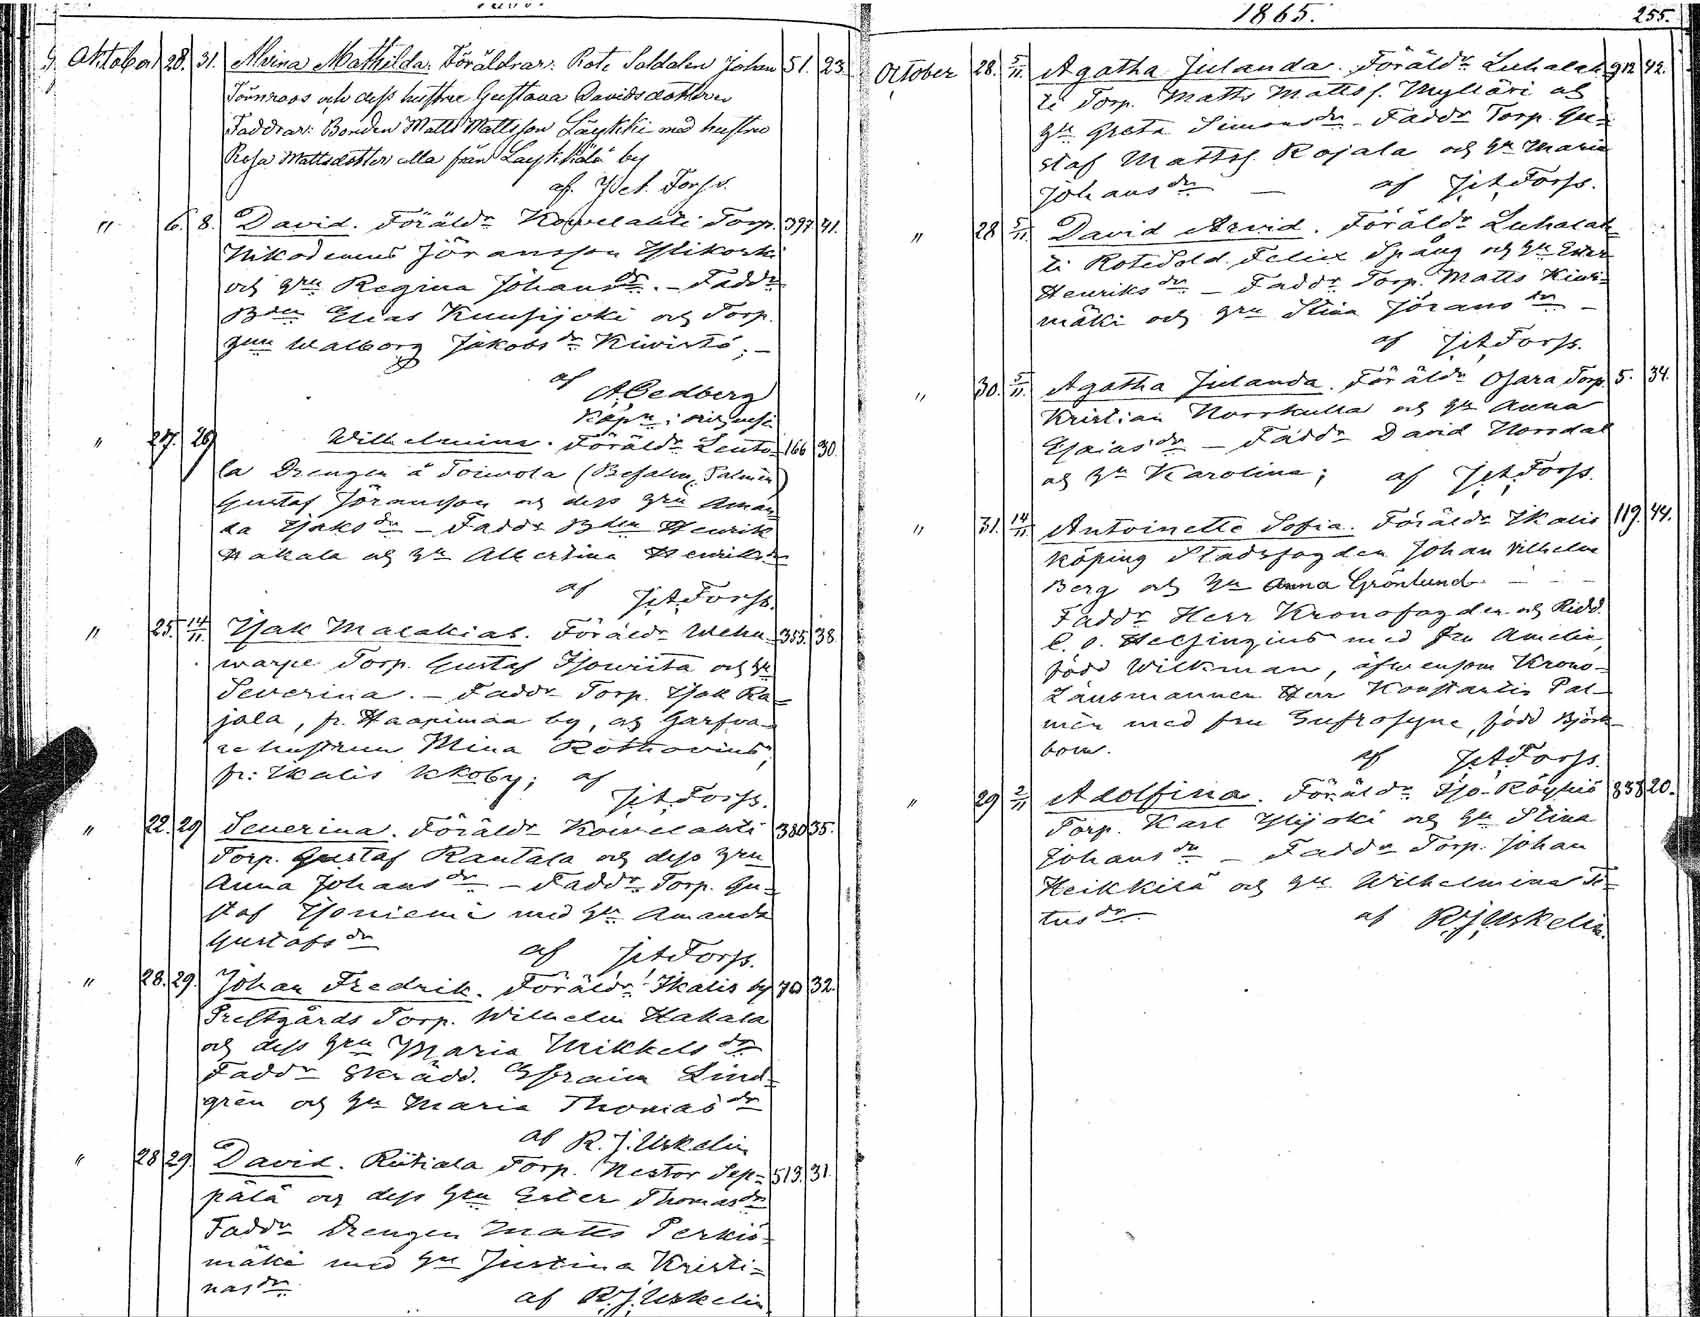 1865. 255.
Oktober 28. 31. Alvina Mathilda. Föräldrar: Rote Soldaten Johan 51. 23.
Törnroos och dess hustru Gustava Davidsdotter
Faddrar: Bonden Matts Mattsson Läykki med hustru
Rosa Mattsdotter alla från Läykkälä by
af J.A. Forss.
" 6. 8. David. Föräldr Kowelahti Torp. 397. 41.
Nikodemus Jöransson Ylikoski
och hru Regina Johansdr. – Faddr
Bden Elias Kuusijoki och Torp.
hru Walborg Jakobsdr Kiwistö; –
af A Cedberg
Kapn:
" 27. 29 Wilhelmina. Föräldr Lento= 166 30.
la Drengen å Toiwola (Palmén)
Gustaf Jöransson och dess hru Aman
da Isaksdr – Faddr Bden Henrik
Hakala och hr Albertina Henriksdr
af J.A. Forss.
" 25. 14/11. Isak Malakias. Föräldr Wehu= 355. 38
warpe Torp. Gustaf och hr
Severina. – Faddr Torp. Isak Ra=
jala, fr. Haapimaa by, och Garfva=
re hustrun Mina Rothovius,
fr: Ikalis Kkoby; af
J.A. Forss.
" 22. 29 Severina. Föräldr Kowelahti 380 35.
Torp. Gustaf Rantala och dess hru
Anna Johansdr. – Faddr. Torp. Gu=
staf Isoniemi med hr Amanda
Gustafsdr af J.A. Forss.
" 28. 29. Johan Fredrik. Föräldr: Ikalis by 70 32.
Prestgårds Torp. Wilhelm Hakala
och dess hru Maria Mikkelsdr
Faddr Skrädd. Efraim Lind=
grén och hr Maria Thomasdr
af R.J. Uskelin
" 28 29. David. Riitiala Torp. Nestor Sep= 513. 31.
pälä och dess hru Ester Thomasdr
Faddr Drengen Matts Perkiö=
mäki med hr Justina Kristi=
nasdr. af R.J. Uskelin.
October 28. 5/11. Agatha Julanda. Föräldr Luhalah= 912 42.
ti Torp. Matts Mattss. Mylläri och
hr Greta Simonsdr – Faddr Torp. Gu=
staf Mattss. Rajala och hr Maria
Johansdr – af J.A. Forss.
" 28 5/11. David Arvid. Föräldr Luhalah=
ti RoteSold. Felix Spång och hr Ester
Henriksdr – Faddr Torp. Matts Kiwi=
mäki och hru Stina Jöransdr –
af J.A. Forss.
" 30. 5/11. Agatha Julanda. Föräldr Osara Torp. 5. 34.
Kristian Norrkulla och hr Anna
Esaiasdr – Faddr David Norrdal
och hr Karolina; af J.A. Forss.
" 31. 14/11 Antoinette Sofia. Föräldr Ikalis 119. 44.
Köping Stadsfogden Johan Vilhelm
Berg och hr Anna Grönlund – – –
Faddr Herr Kronofogden och Ridd.
C. O. Helsingius med fru Amelie,
född Wilkman, äfvensom Krono=
Länsmannen Herr Konstantin Pal=
mén med fru Eufrosyne, född Björk=
bom. af J.A. Forss.
" 29 2/11 Adolfina. Föräldr Iso-Röyhiö 838 20.
Torp. Karl Ylijoki och hr Stina
Johansdr – Faddr Torp. Johan
Heikkilä och hr Wilhelmina Ti=
tusdr af R.J. Uskelin.